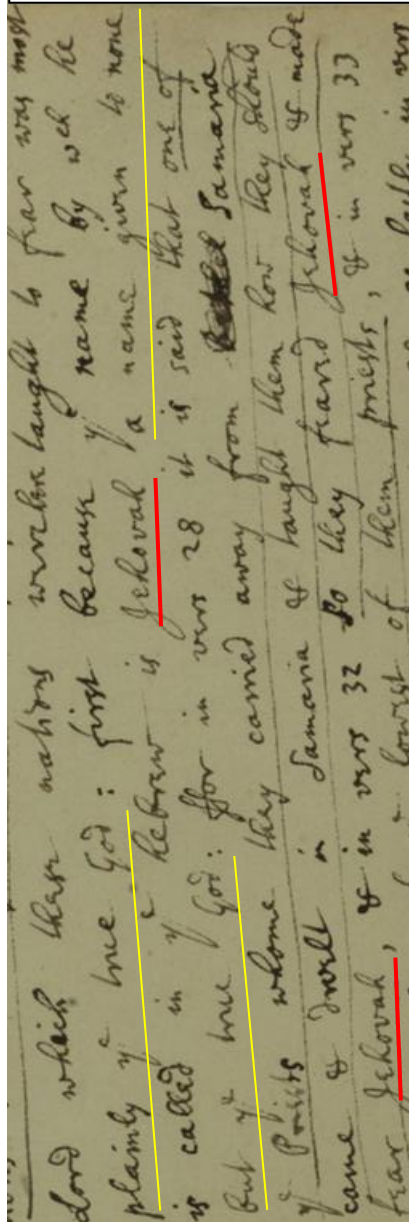 Lord which these nations were taught to fear was most
plainly yᵉ true God: first because yᵉ name by wch he
is called in yᵉ hebrew is Jehovah a name given to none
but yᵉ true God: ffor in vers 28 it is said that one of
yᵉ Priests whome they carried away from Samaria
came & dwelt in Samaria & taught them how they should
fear Jehovah, & in vers 32 So they feared Jehovah & made
lowest of them priests, & in vers 33